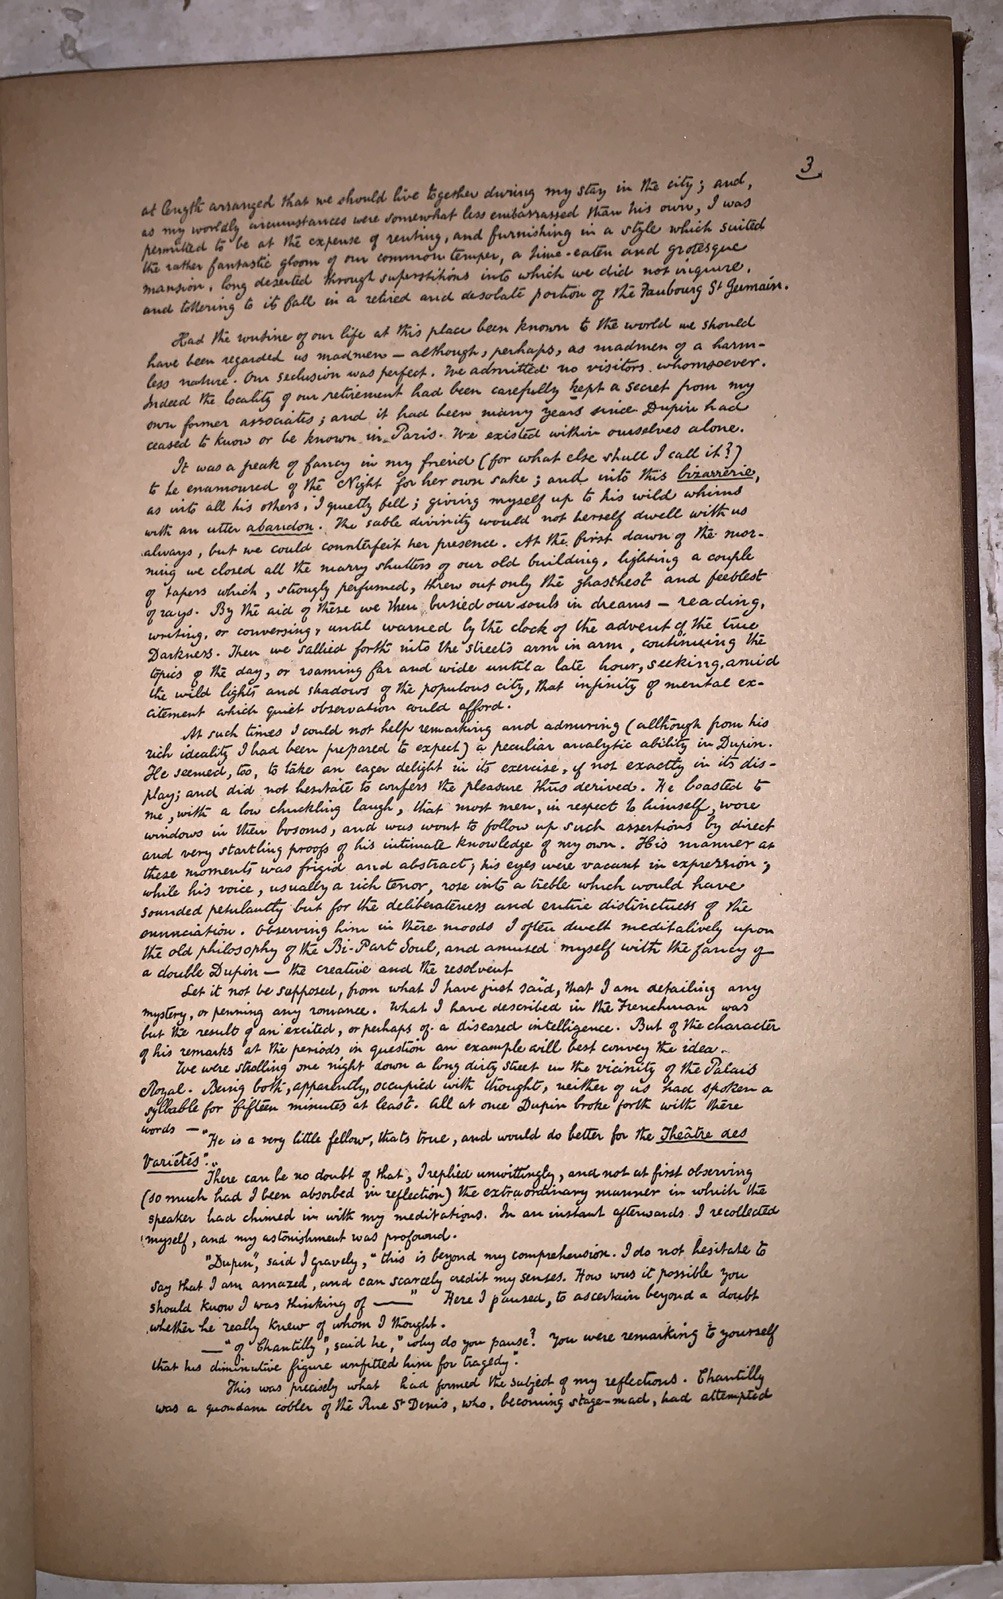 3
at length arranged that we should live together during my stay in the city; and,
as my worldly circumstances were somewhat less embarrassed than his own, I was
permitted to be at the expense of renting, and furnishing in a style which suited
the rather fantastic gloom of our common temper, a time-eaten and grotesque
mansion, long deserted through superstitions into which we did not inquire,
and tottering to its fall in a retired and desolate portion of the Faubourg St Germain.
Had the routine of our life at this place been known to the world we should
have been regarded as madmen — although, perhaps, as madmen of a harm-
less nature. Our seclusion was perfect. We admitted no visitors whomsoever.
Indeed the locality of our retirement had been carefully kept a secret from my
own former associates; and it had been many years since Dupin had
ceased to know or be known in Paris. We existed within ourselves alone.
It was a freak of fancy in my friend (for what else shall I call it?)
to be enamoured of the Night for her own sake; and into this bizarrerie,
as into all his others, I quietly fell; giving myself up to his wild whims
with an utter abandon. The sable divinity would not herself dwell with us
always, but we could counterfeit her presence. At the first dawn of the mor-
ning we closed all the massy shutters of our old building, lighting a couple
of tapers which, strongly perfumed, threw out only the ghastliest and feeblest
of rays. By the aid of these we then busied our souls in dreams — reading,
writing, or conversing, until warned by the clock of the advent of the true
Darkness. Then we sallied forth into the streets arm in arm, continuing the
topics of the day, or roaming far and wide until a late hour, seeking, amid
the wild lights and shadows of the populous city, that infinity of mental ex-
citement which quiet observation would afford.
At such times I could not help remarking and admiring (although from his
rich ideality I had been prepared to expect) a peculiar analytic ability in Dupin.
He seemed, too, to take an eager delight in its exercise, if not exactly in its dis-
play; and did not hesitate to confess the pleasure thus derived. He boasted to
me, with a low chuckling laugh, that most men, in respect to himself, wore
windows in their bosoms, and was wont to follow up such assertions by direct
and very startling proofs of his intimate knowledge of my own. His manner at
these moments was frigid and abstract; his eyes were vacant in expression;
while his voice, usually a rich tenor, rose into a treble which would have
sounded petulantly but for the deliberateness and entire distinctness of the
enunciation. Observing him in these moods I often dwelt meditatively upon
the old philosophy of the Bi-Part Soul, and amused myself with the fancy of
a double Dupin — the creative and the resolvent
Let it not be supposed, from what I have just said, that I am detailing any
mystery, or penning any romance. What I have described in the Frenchman was
but the result of an excited, or perhaps of a diseased intelligence. But of the character
of his remarks at the periods in question an example will best convey the idea.
We were strolling one night down a long dirty street in the vicinity of the Palais
Royal. Being both, apparently, occupied with thought, neither of us had spoken a
syllable for fifteen minutes at least. All at once Dupin broke forth with these
words —
"He is a very little fellow, thats true, and would do better for the Theâtre des
Varietés".
There can be no doubt of that, I replied unwittingly, and not at first observing
(so much had I been absorbed in reflection) the extraordinary manner in which the
speaker had chimed in with my meditations. In an instant afterwards I recollected
myself, and my astonishment was profound.
"Dupin", said I gravely, "this is beyond my comprehension. I do not hesitate to
say that I am amazed, and can scarcely credit my senses. How was it possible you
should know I was thinking of ——" Here I paused, to ascertain beyond a doubt
whether he really knew of whom I thought.
—"of Chantilly", said he, "why do you pause? You were remarking to yourself
that his diminutive figure unfitted him for tragedy".
This was precisely what had formed the subject of my reflections. Chantilly
was a quondam cobler of the Rue St Denis, who, becoming stage-mad, had attempted